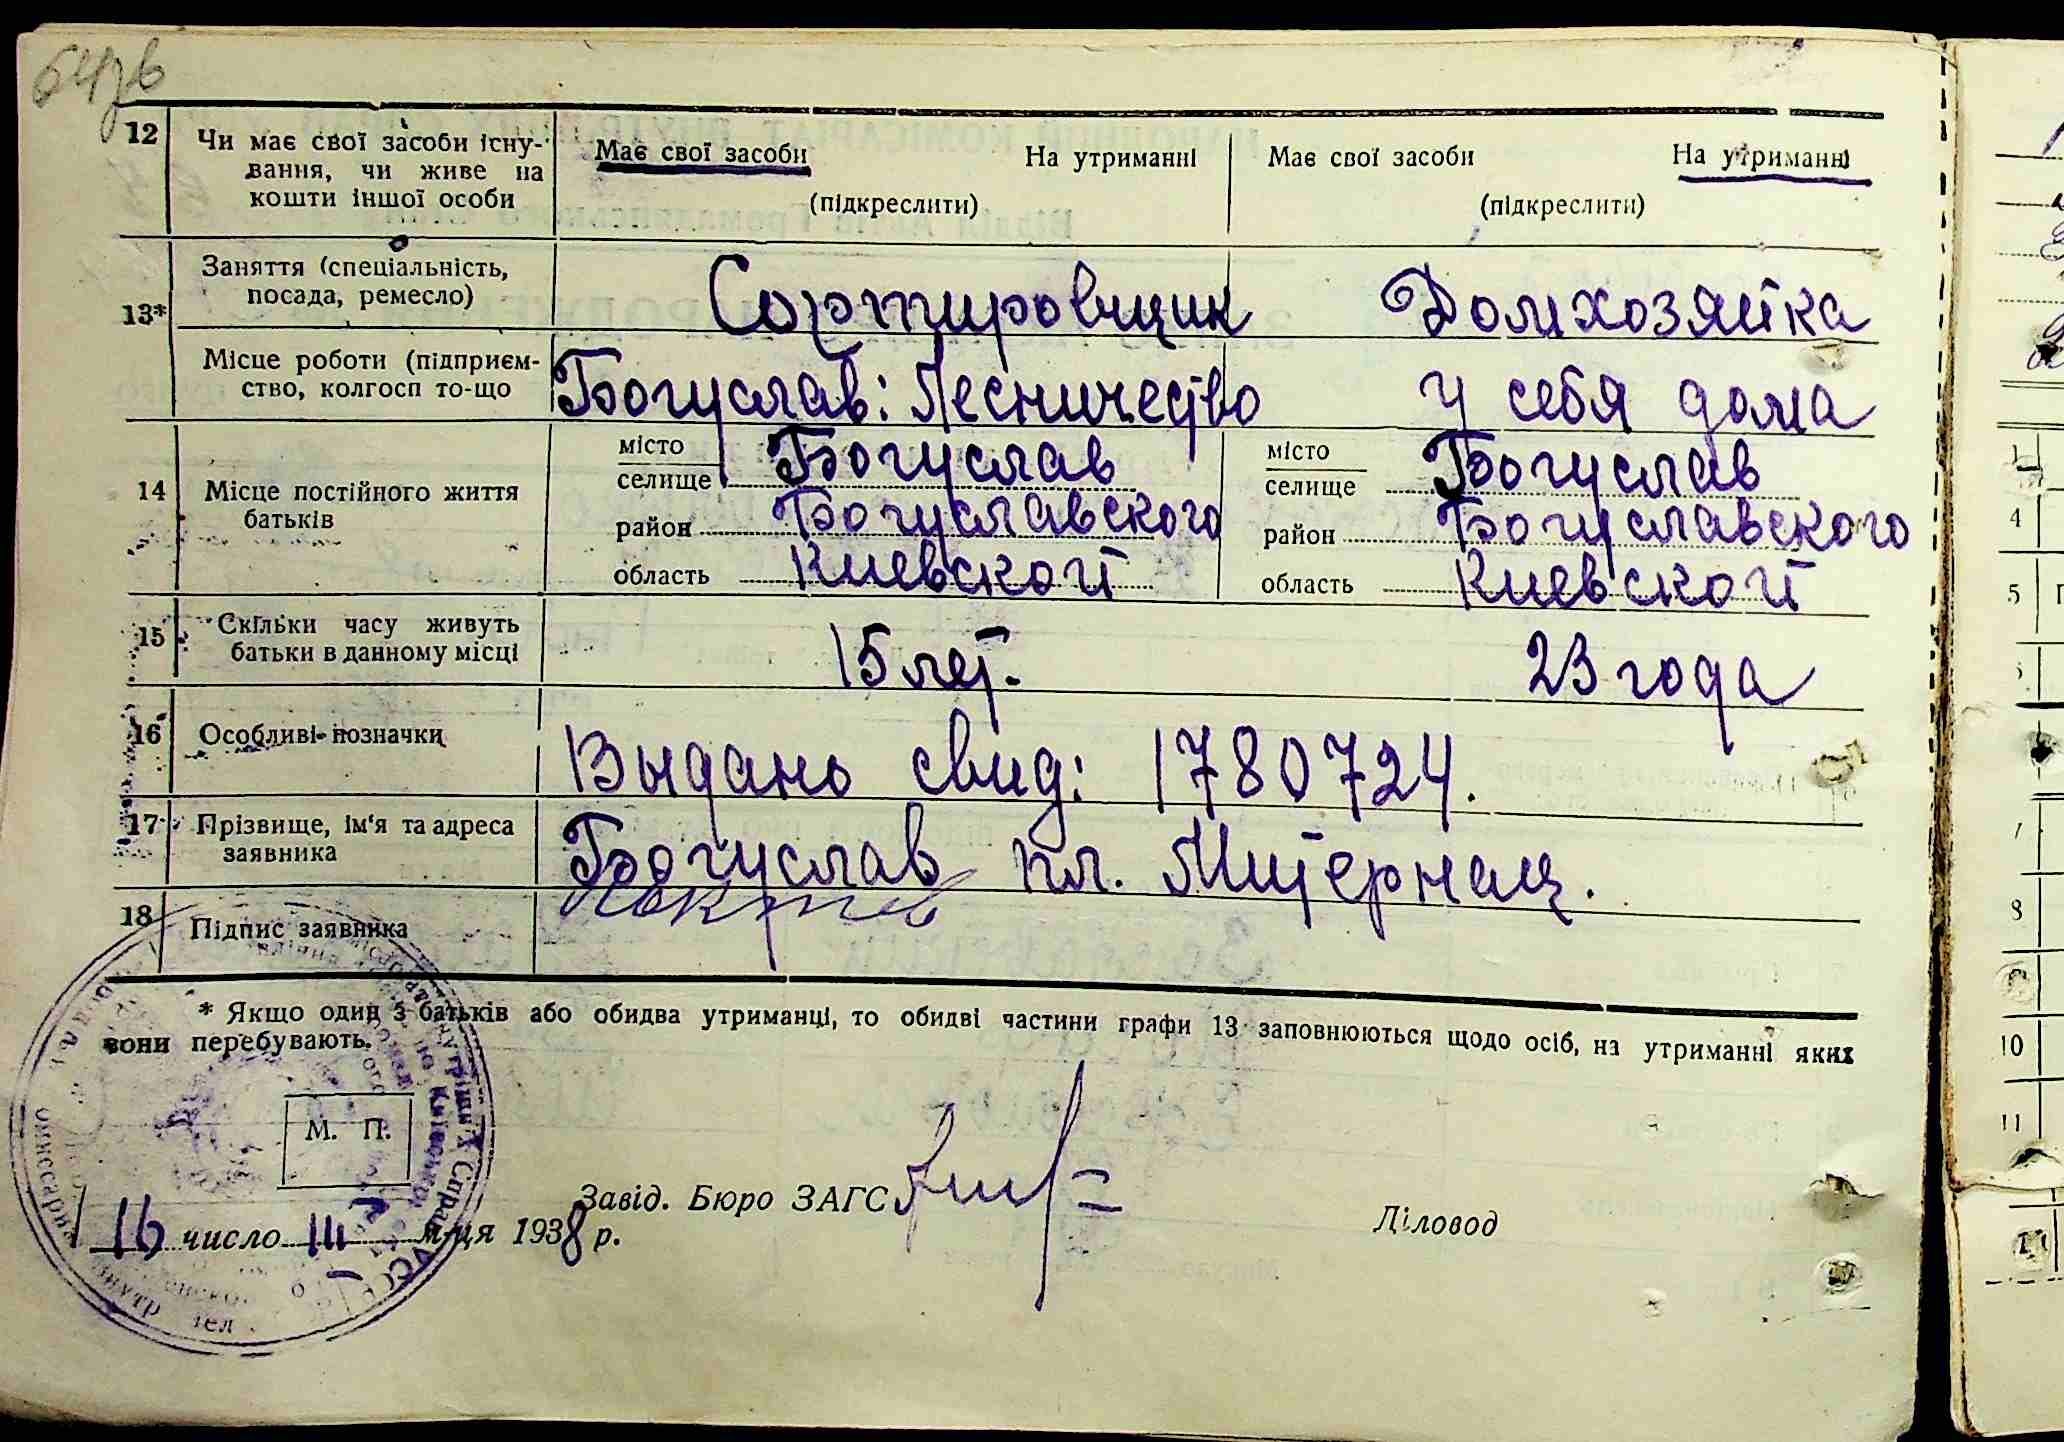 12 Чи має свої засоби існу-
вання, чи живе на
кошти іншої особи
Має свої засоби На утриманні Має свої засоби На утриманні
(підкреслити) (підкреслити)
13* Заняття (спеціальність,
посада, ремесло)
Сортировщик Домхозяйка
Місце роботи (підприєм-
ство, колгосп то-що
Богуслав: Лесничество у себя дома
14 Місце постійного життя
батьків
місто
селище Богуслав
район Богуславского
область Киевской
місто
селище Богуслав
район Богуславского
область Киевской
15 Скільки часу живуть
батьки в данному місці
15 лет. 23 года
16 Особливі позначки
Выдано свид: 1780724.
17 Прізвище, ім'я та адреса
заявника
Богуслав пл. Интернац.
18 Підпис заявника
* Якщо один з батьків або обидва утриманці, то обидві частини графи 13 заповнюються щодо осіб, на утриманні яких
вони перебувають.
М. П.
Завід. Бюро ЗАГС
Діловод
16 число III м-ця 1938 р.
4
5
8
10
11